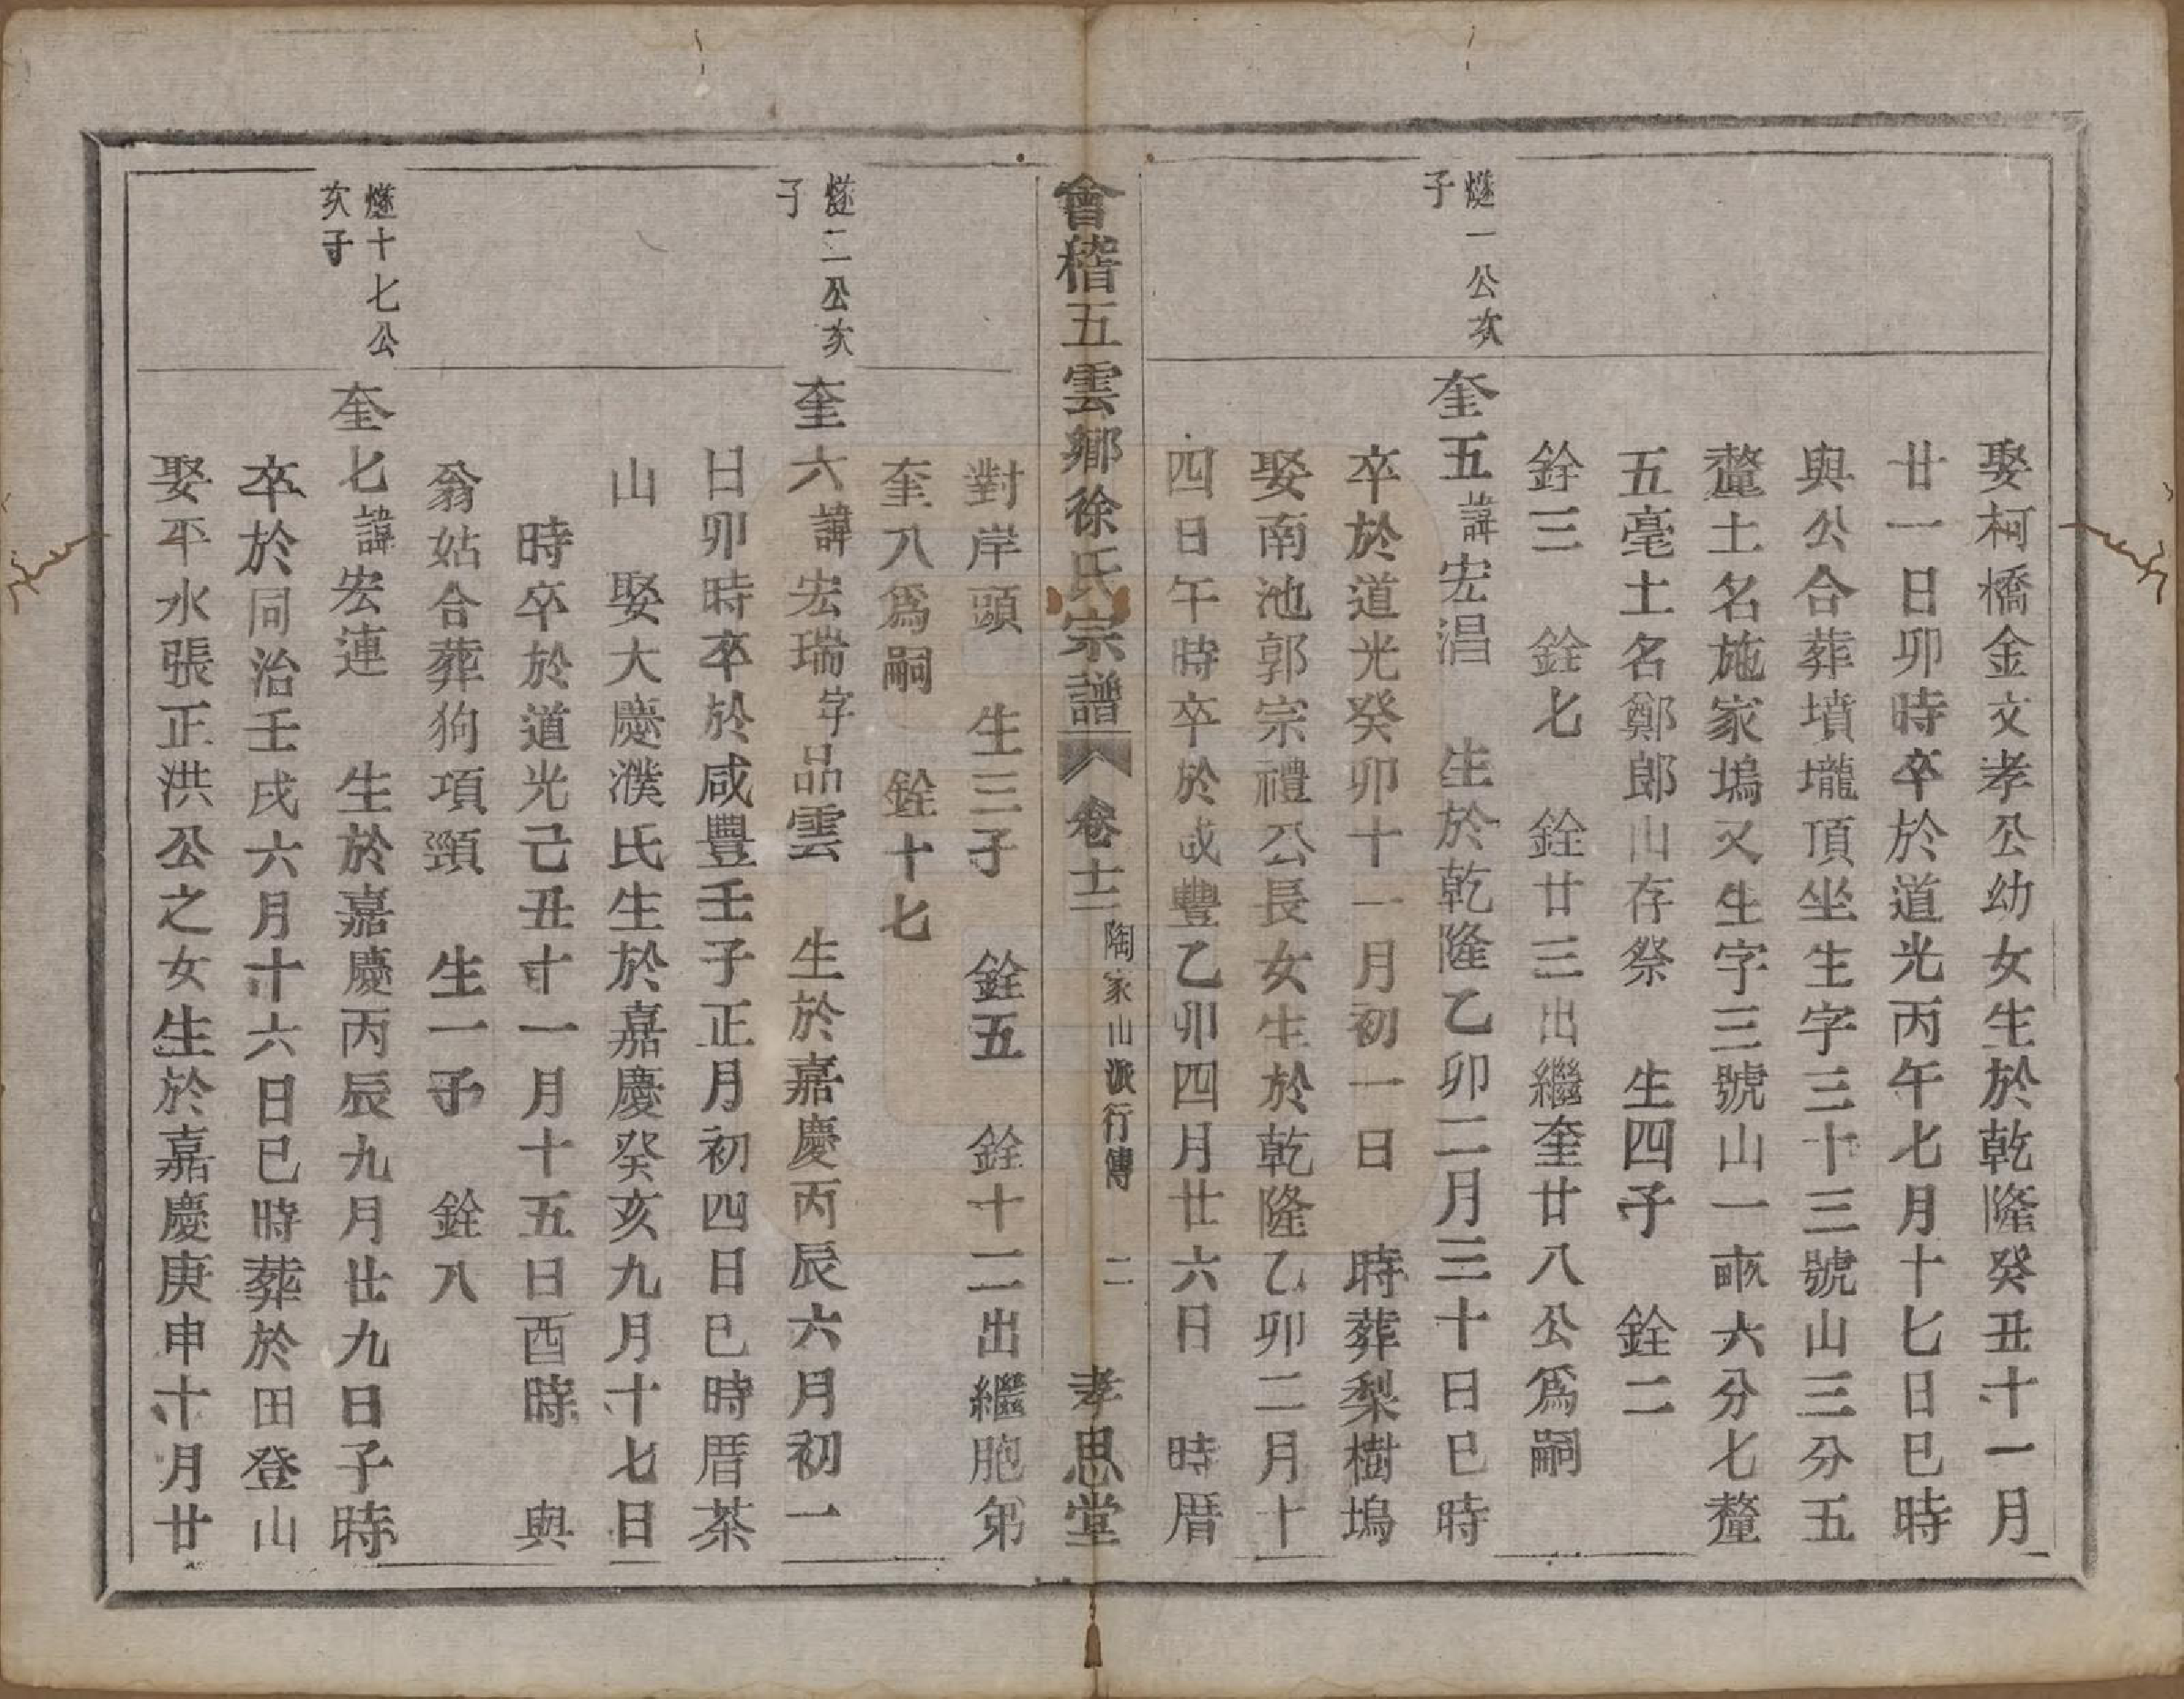 娶柯橋金文孝公幼女生於乾隆癸丑十一月
廿一日卯時卒於道光丙午七月十七日巳時
與公合葬墳壠頂坐生字三十三號山三分五
釐土名施家塢又生字三號山一畝六分七釐
五毫土名鄭郎山存祭　生四子　銓二
銓三　銓七　銓廿三出繼奎廿八公爲嗣
燧一公次
子
奎五諱宏淐　生於乾隆乙卯二月三十日巳時
卒於道光癸卯十一月初一日　時葬梨樹塢
娶南池郭宗禮公長女生於乾隆乙卯二月十
四日午時卒於咸豐乙卯四月廿六日　時厝
會稽五雲鄉徐氏宗譜　卷十二　陶家山派行傳　二　孝思堂
對岸頭　生三子　銓五　銓十二出繼胞弟
奎八爲嗣　銓十七
燧二公次
子
奎六諱宏瑞字品雲　生於嘉慶丙辰六月初一
日卯時卒於咸豐壬子正月初四日巳時厝茶
山　娶大慶濮氏生於嘉慶癸亥九月十七日
時卒於道光己丑十一月十五日酉時　與
翁姑合葬狗項頸　生一子　銓八
燧十七公
次子
奎七諱宏連　生於嘉慶丙辰九月廿九日子時
卒於同治壬戌六月十六日巳時葬於田登山
娶平水張正洪公之女生於嘉慶庚申十月廿